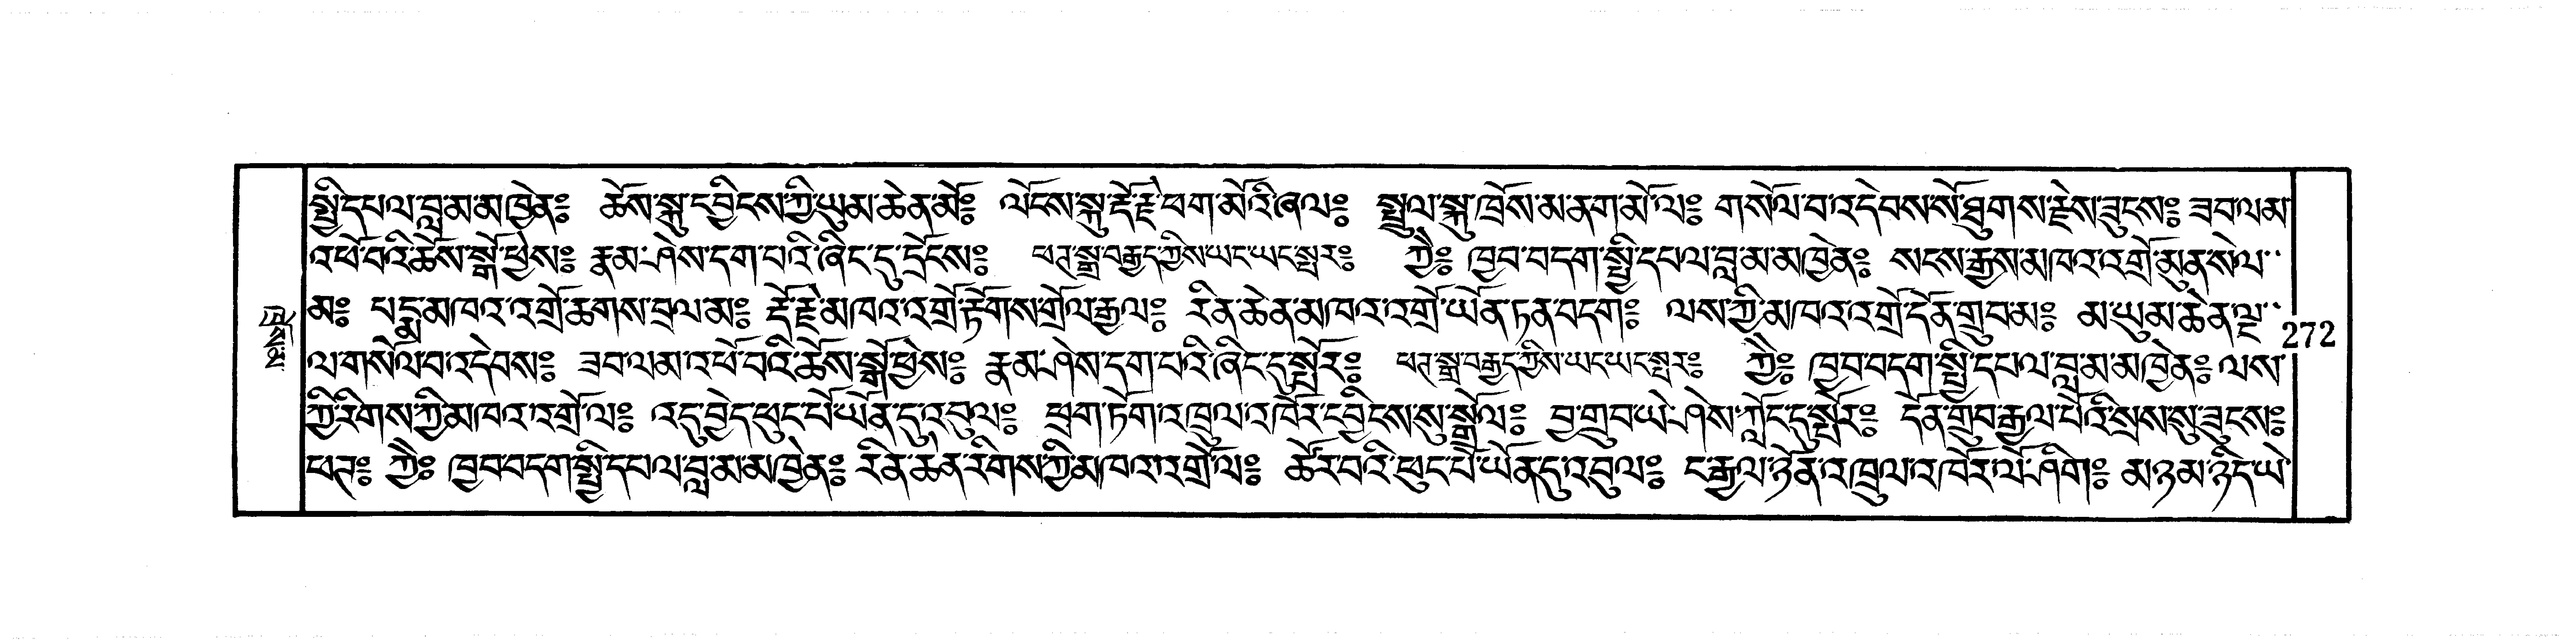 སྤྱི་དཔལ་བླ་མ་མཁྱེན༔ ཆོས་སྐུ་དབྱིངས་ཀྱི་ཡུམ་ཆེན་མོ༔ ལོངས་སྐུ་རྡོ་རྗེ་ཕག་མོའི་ཞལ༔ སྤྲུལ་སྐུ་ཁྲོས་མ་ནག་མོ་ལ༔ གསོལ་བ་འདེབས་སོ་ཐུགས་རྗེས་ཟུངས༔ ཟབ་ལམ་
འཕོ་བའི་ཆོས་སྒོ་ཕྱེས༔ རྣམ་ཤེས་དག་པའི་ཞིང་དུ་དྲོངས༔ ཕཊ་སྒྲ་བརྒྱད་ཀྱིས་ཡང་ཡང་སྤར༔ ཀྱཻ༔ ཁྱབ་བདག་སྤྱི་དཔལ་བླ་མ་མཁྱེན༔ སངས་རྒྱས་མཁའ་འགྲོ་མུན་སེལ་
མ༔ པདྨ་མཁའ་འགྲོ་ཆགས་བྲལ་མ༔ རྡོ་རྗེ་མཁའ་འགྲོ་རྟོགས་གྲོལ་རྒྱལ༔ རིན་ཆེན་མཁའ་འགྲོ་ཡོན་ཏན་བདག༔ ལས་ཀྱི་མཁའ་འགྲོ་དོན་གྲུབ་མ༔ མ་ཡུམ་ཆེན་ལྔ་
272
ལ་གསོལ་བ་འདེབས༔ ཟབ་ལམ་འཕོ་བའི་ཆོས་སྒོ་ཕྱེས༔ རྣམ་ཤེས་དག་པའི་ཞིང་དུ་སྤོར༔ ཕཊ་སྒྲ་བརྒྱད་ཀྱིས་ཡང་ཡང་སྤར༔ ཀྱཻ༔ ཁྱབ་བདག་སྤྱི་དཔལ་བླ་མ་མཁྱེན༔ ལས་
ཀྱི་རིགས་ཀྱི་མཁའ་འགྲོ་ལ༔ འདུ་བྱེད་ཕུང་པོ་ཡོན་དུ་འབུལ༔ ཕྲག་ཏོག་འཁྲུལ་འཁོར་དབྱིངས་སུ་སྒྲོལ༔ བྱ་གྲུབ་ཡེ་ཤེས་ཀློང་དུ་སྤོར༔ དོན་གྲུབ་རྒྱལ་པོའི་སྲས་སུ་ཟུངས༔
ཕཊ༔ ཀྱཻ༔ ཁྱབ་བདག་སྤྱི་དཔལ་བླ་མ་མཁྱེན༔ རིན་ཆེན་རིགས་ཀྱི་མཁའ་འགྲོ་ལ༔ ཚོར་བའི་ཕུང་པོ་ཡོན་དུ་འབུལ༔ ང་རྒྱལ་ཉོན་འཁྲུལ་འཁོར་ལོ་ཤིག༔ མཉམ་ཉིད་ཡེ་